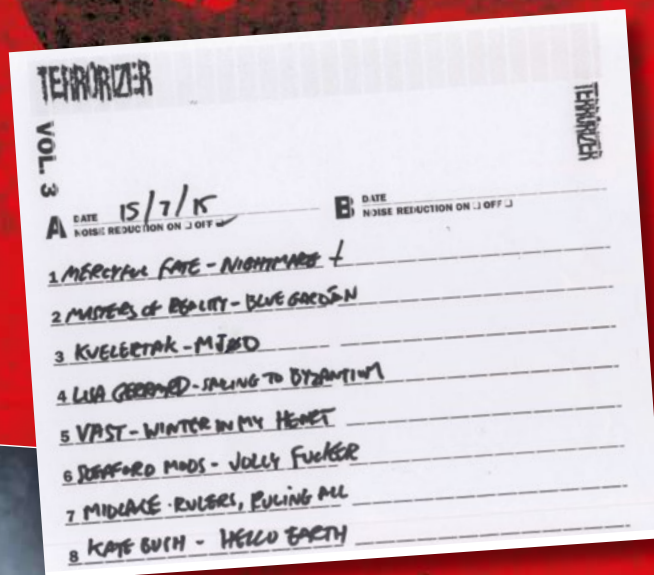 TERRORIZER
TERRORIZER
VOL. 3
A DATE 15/7/15
NOISE REDUCTION ON ❏ OFF ❏
B DATE
NOISE REDUCTION ON ❏ OFF ❏
1 MERCYFUL FATE - NIGHTMARE
2 MASTERS OF REALITY - BLUE GARDEN
3 KVELERTAK - MJØD
4 LISA GERRARD - SAILING TO BYZANTIUM
5 VAST - WINTER IN MY HEART
6 SLEAFORD MODS - JOLLY FUCKER
7 MIDLAKE - RULERS, RULING ALL
8 KATE BUSH - HELLO EARTH